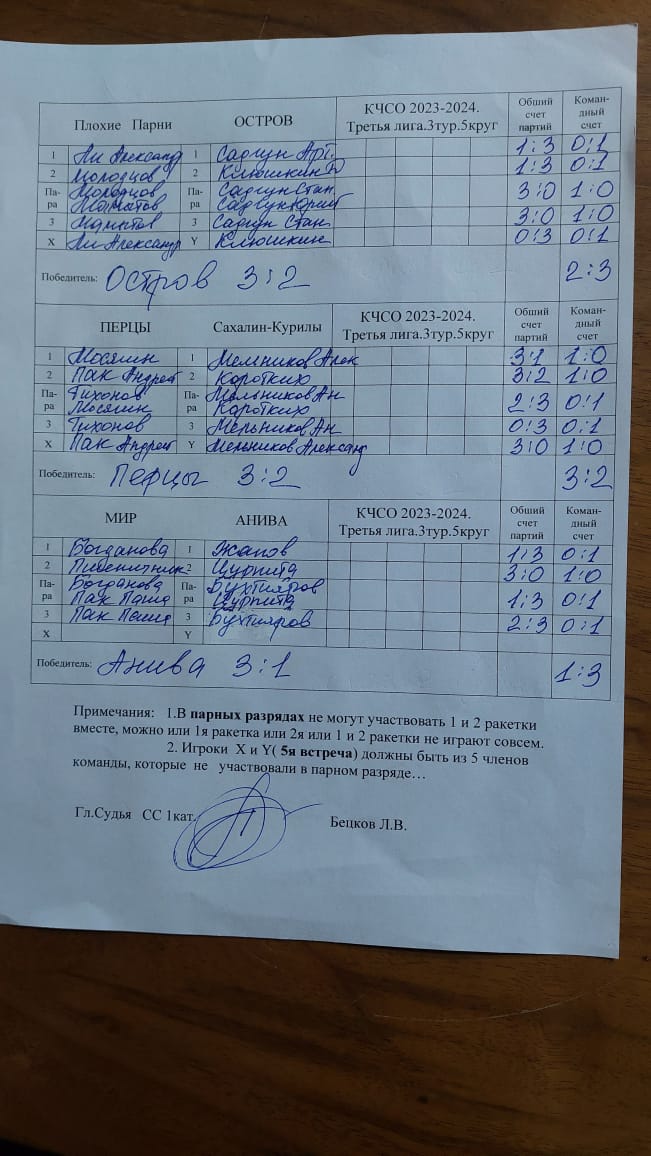 Плохие Парни ОСТРОВ КЧСО 2023-2024. Третья лига.3тур.5круг Общий счет партий Коман-дный счет
1 Ли Александр 1 Садчун Арт. 1:3 0:1
2 Молодцов 2 Клюшкин Д 1:3 0:1
Па-ра Молодцов Па-ра Садчун Стан. 3:0 1:0
3 3 Садчун Стан. 3:0 1:0
X Ли Александр Y Клюшкин 0:3 0:1
Победитель: Остров 3:2 2:3
ПЕРЦЫ Сахалин-Курилы КЧСО 2023-2024. Третья лига.3тур.5круг Общий счет партий Коман-дный счет
1 Мосягин 1 Мельников Алек 3:1 1:0
2 Пак Андрей 2 Коротких 3:2 1:0
Па-ра Тихонов Па-ра Мельников Ан 2:3 0:1
Мосягин Коротких
3 Тихонов 3 Мельников Ан 0:3 0:1
X Пак Андрей Y Мельников Александ 3:0 1:0
Победитель: Перцы 3:2 3:2
МИР АНИВА КЧСО 2023-2024. Третья лига.3тур.5круг Общий счет партий Коман-дный счет
1 Богданова 1 Жапов 1:3 0:1
2 2 3:0 1:0
Па-ра Богданова Па-ра Бухтияров 1:3 0:1
Пак Паша
3 Пак Паша 3 Бухтияров 2:3 0:1
X Y
Победитель: Анива 3:1 1:3
Примечания: 1.В парных разрядах не могут участвовать 1 и 2 ракетки
вместе, можно или 1я ракетка или 2я или 1 и 2 ракетки не играют совсем.
2. Игроки X и Y( 5я встреча) должны быть из 5 членов
команды, которые не участвовали в парном разряде…
Гл.Судья СС 1кат. Бецков Л.В.